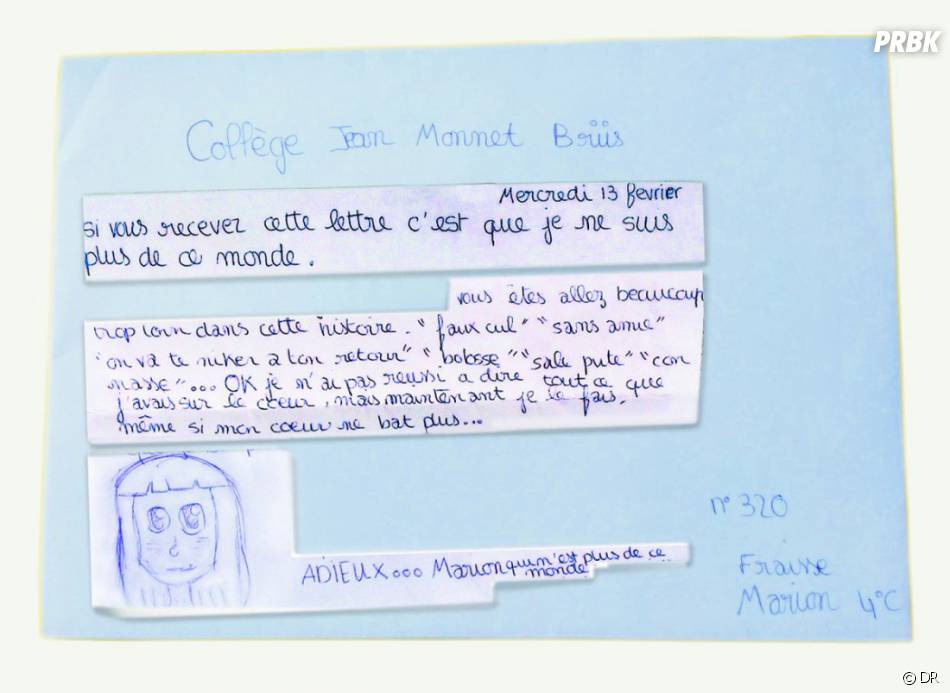 PRBK
Collège Jean Monnet Brüis
Mercredi 13 fevrier
si vous recevez cette lettre c'est que je ne suis
plus de ce monde.
vous êtes allez beaucoup
trop loin dans cette histoire. "faux cul" "sans amie"
"on va te niker a ton retour" "bobosse" "sale pute" "con
nasse"... OK je n'ai pas reussi a dire tout ce que
j'avais sur le coeur, mais maintenant je le fais,
même si mon coeur ne bat plus...
ADIEUX... Marion qui n'est plus de ce
monde
n° 320
Fraisse
Marion 4°C
© DR